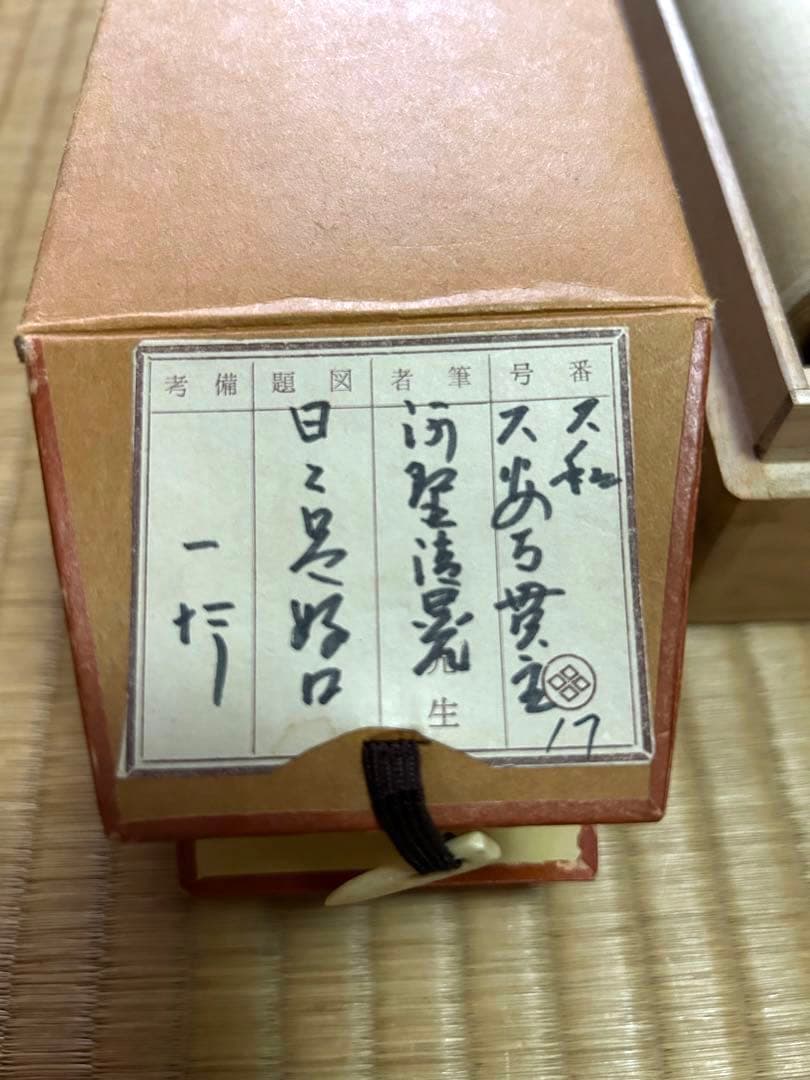 番号
大和
大安寺貫主
17
筆者
河野清晃
先生
図題
日々是好日
備考
一行